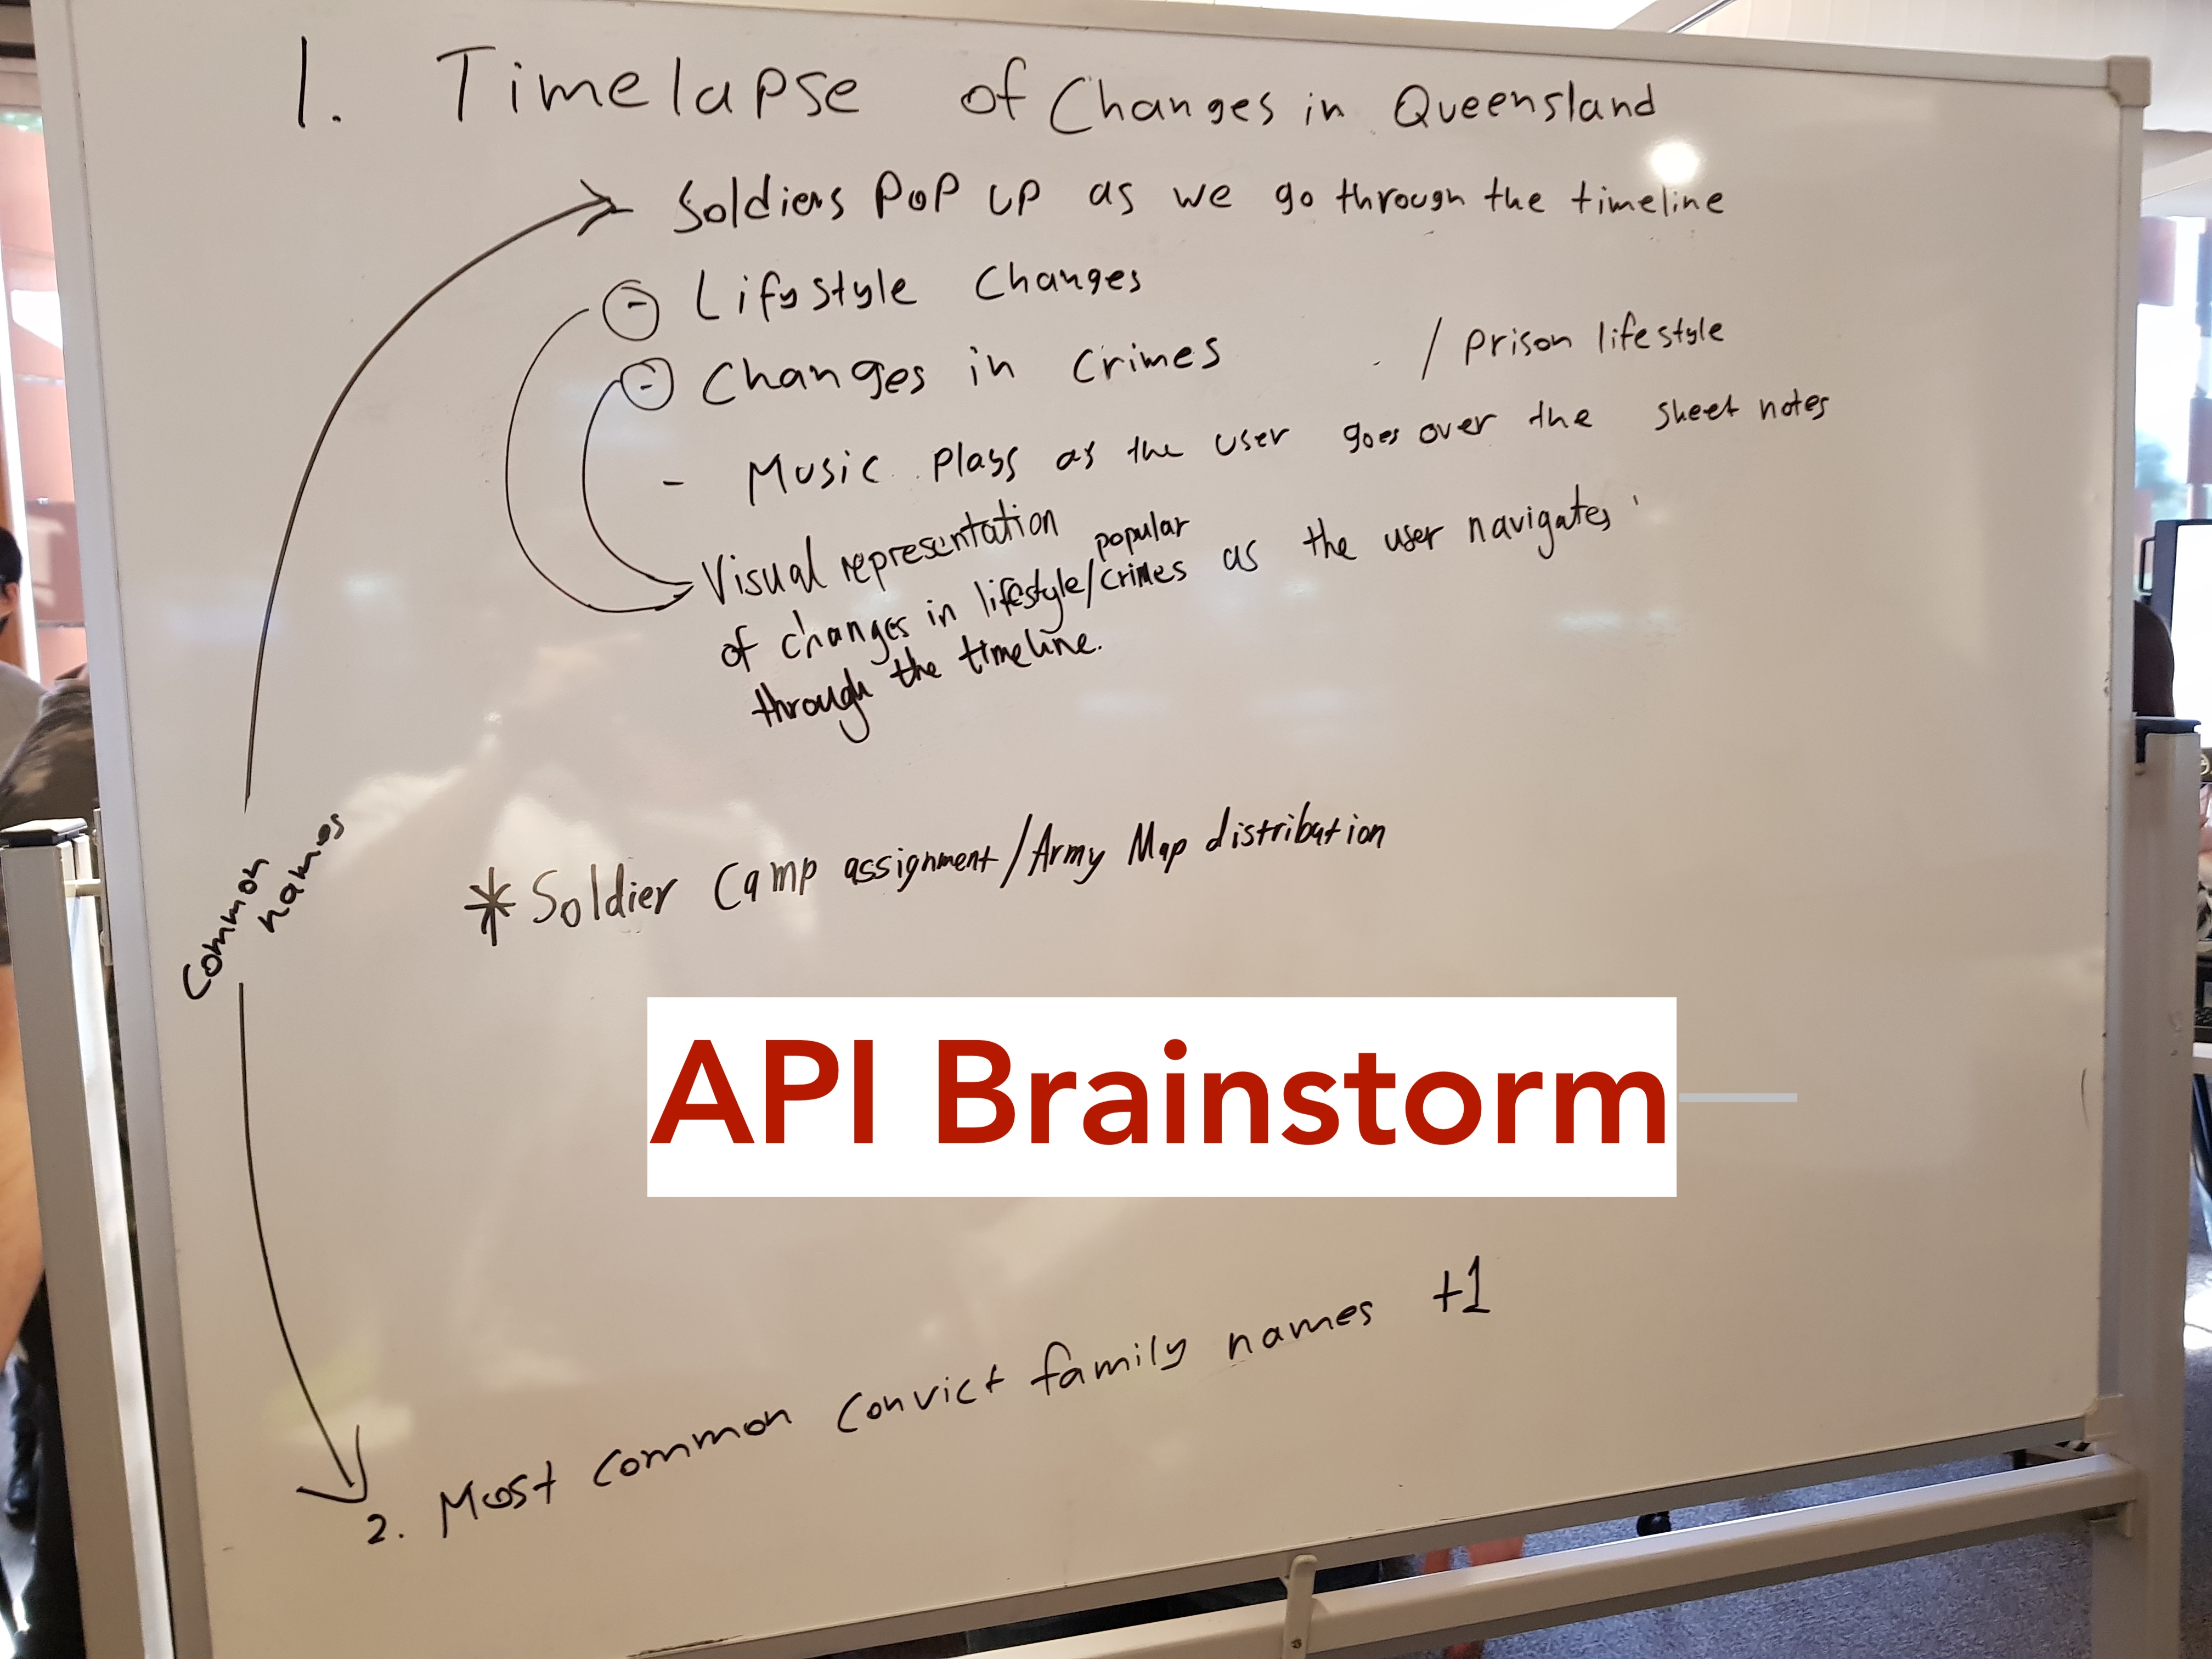 1. Timelapse of Changes in Queensland
- Soldiers PoP up as we go through the timeline
- Lifystyle Changes
- Changes in Crimes / Prison lifestyle
- Music Plays as the user goes over the sheet notes
Visual representation
of changes in lifestyle/popular crimes as the user navigates
through the timeline.
Common
names
* Soldier Camp assignment/Army Map distribution
API Brainstorm
2. Most common convict family names +1